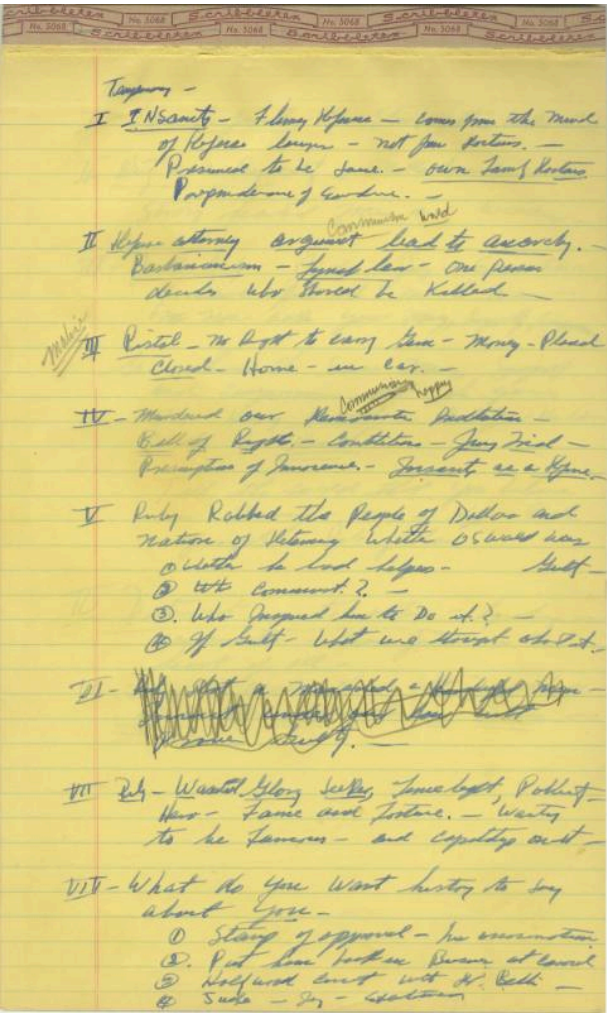 Scribbletex No. 3068 Scribbletex No. 3068 Scribbletex No. 3068
I INSanity - Flimsy Defense - comes from the Mind
of Defense lawyer - not from Doctors. -
Presumed to be Sane. - own Family Doctors
Preponderance of Evidence. -
Communism world
II Defense attorney argument lead to anarchy. -
Barbarianism - Lynch law - One person
decides who should be Killed -
III Pistol - no Right to carry Gun - Money - Placed
Closed - Home - in car. -
Communism happy
IV - Murdered our -
Bill of Rights, - Constitution - Jury Trial -
Presumption of Innocence. - Insanity as a Defense
V Ruby Robbed the People of Dallas and
Nation of History whether Oswald was
① Whether he had helpers - Guilt -
② Communist. ?. -
③. Who Inspired him to Do it. ? -
④ If Guilt - What we thought about it. -
VI -
Guilty. -
VII Ruby - Wanted Glory Seeker, Limelight, Publicity -
Hero - Fame and Fortune. - Wants
to be Famous - and capitalize on it -
VIII - What do you want history to say
about You -
① Stamp of approval - his assassination
②. Put him back in Business at Carousel
③ Hollywood court with Mr. Belli -
④